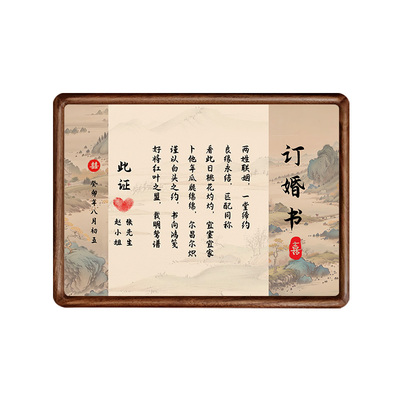 订婚书
两姓联姻，一堂缔约
良缘永结，匹配同称
看此日桃花灼灼，宜室宜家
卜他年瓜瓞绵绵，尔昌尔炽
谨以白头之约，书向鸿笺
好将红叶之盟，载明鸳谱
此证
张先生
赵小姐
囍
癸卯年八月初五